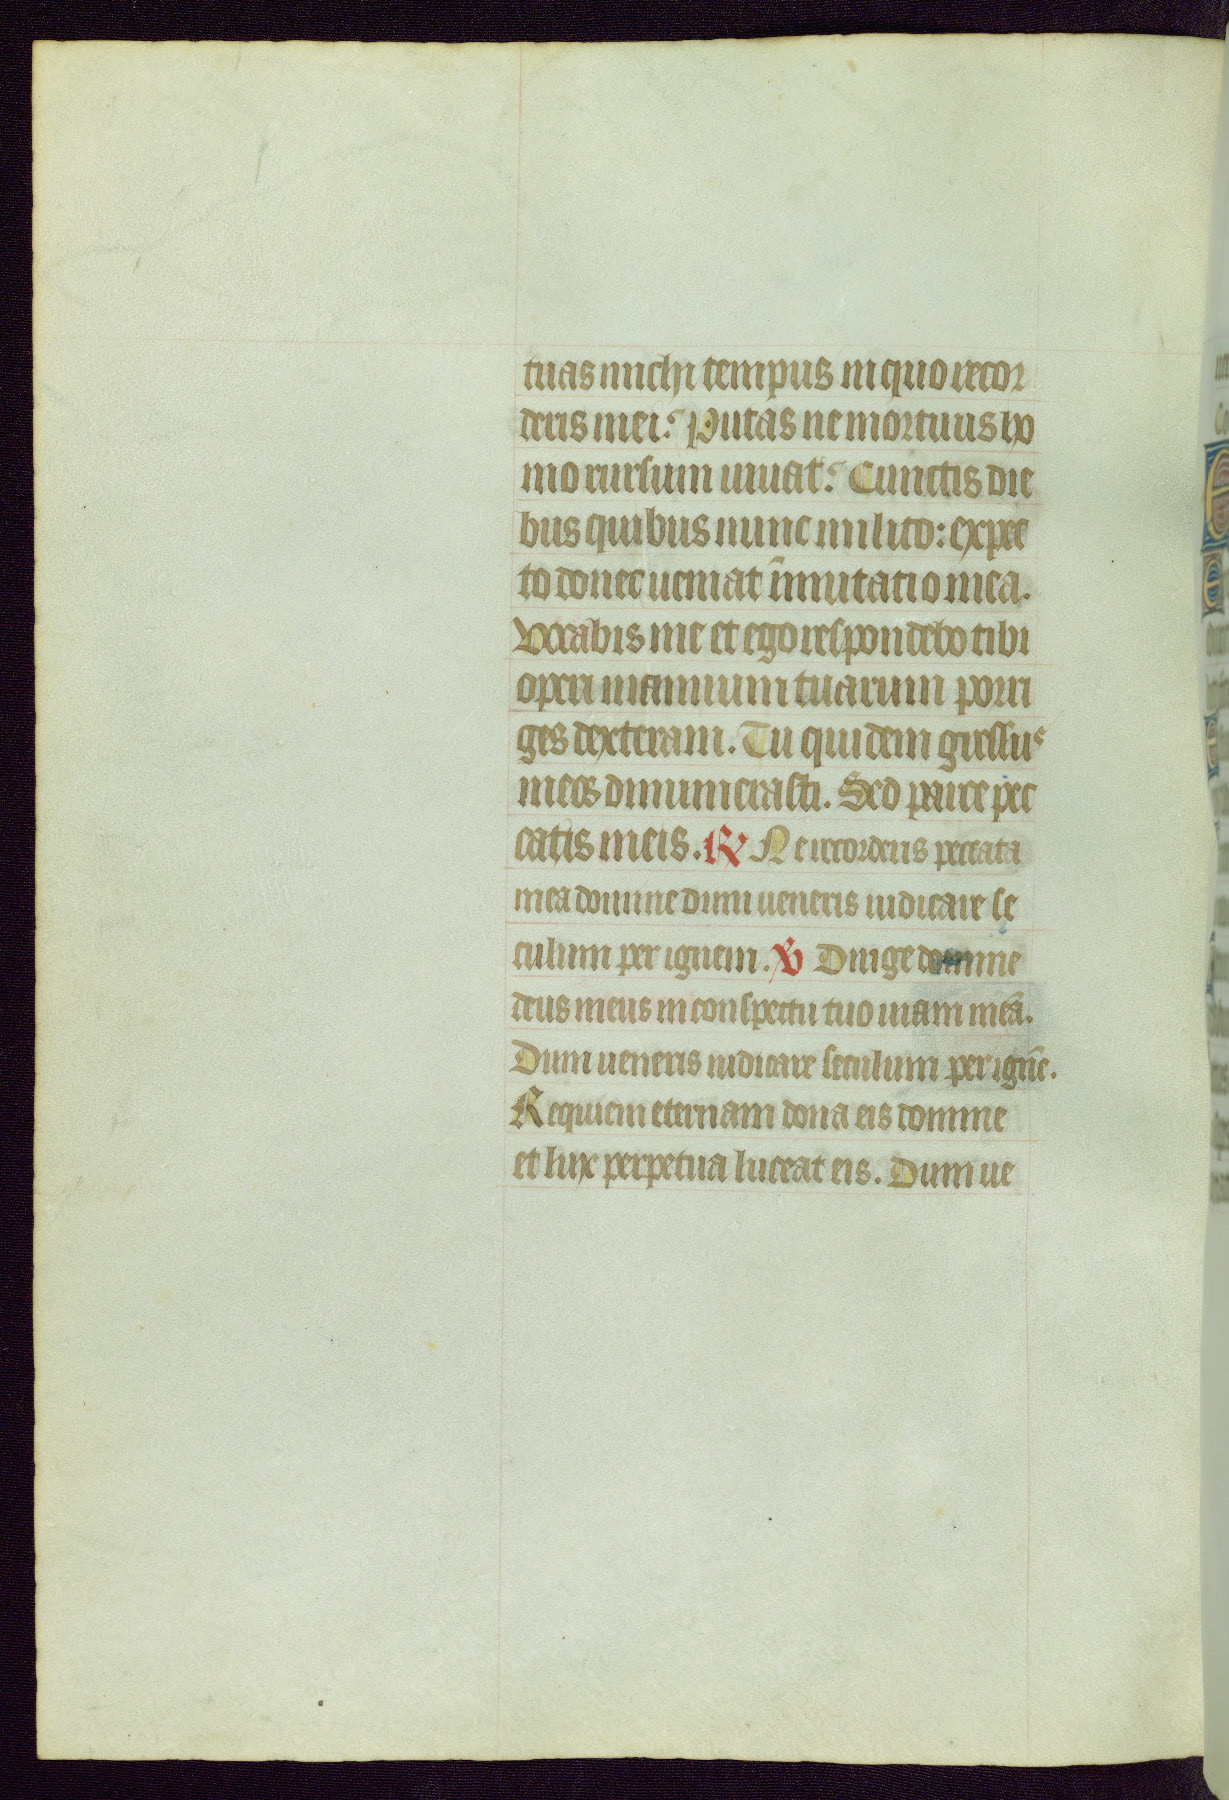 tuas michi tempus in quo recor
deris mei? Putas ne mortuus ho
mo rursum uiuat? Cunctis die
bus quibus nunc milito: expec
to donec ueniat īmutatio mea.
Vocabis me et ego respondebo tibi
operi manuum tuarum porri
ges dexteram. Tu quidem gressus
meos dinumerasti. Sed parce pec
catis meis. R Ne recorderis peccata
mea domine dum ueneris iudicare se
culum per ignem. V Dirige domine
deus meus in conspectu tuo uiam meā.
Dum ueneris iudicare seculum per ignē.
Requiem eternam dona eis domine
et lux perpetua luceat eis. Dum ue